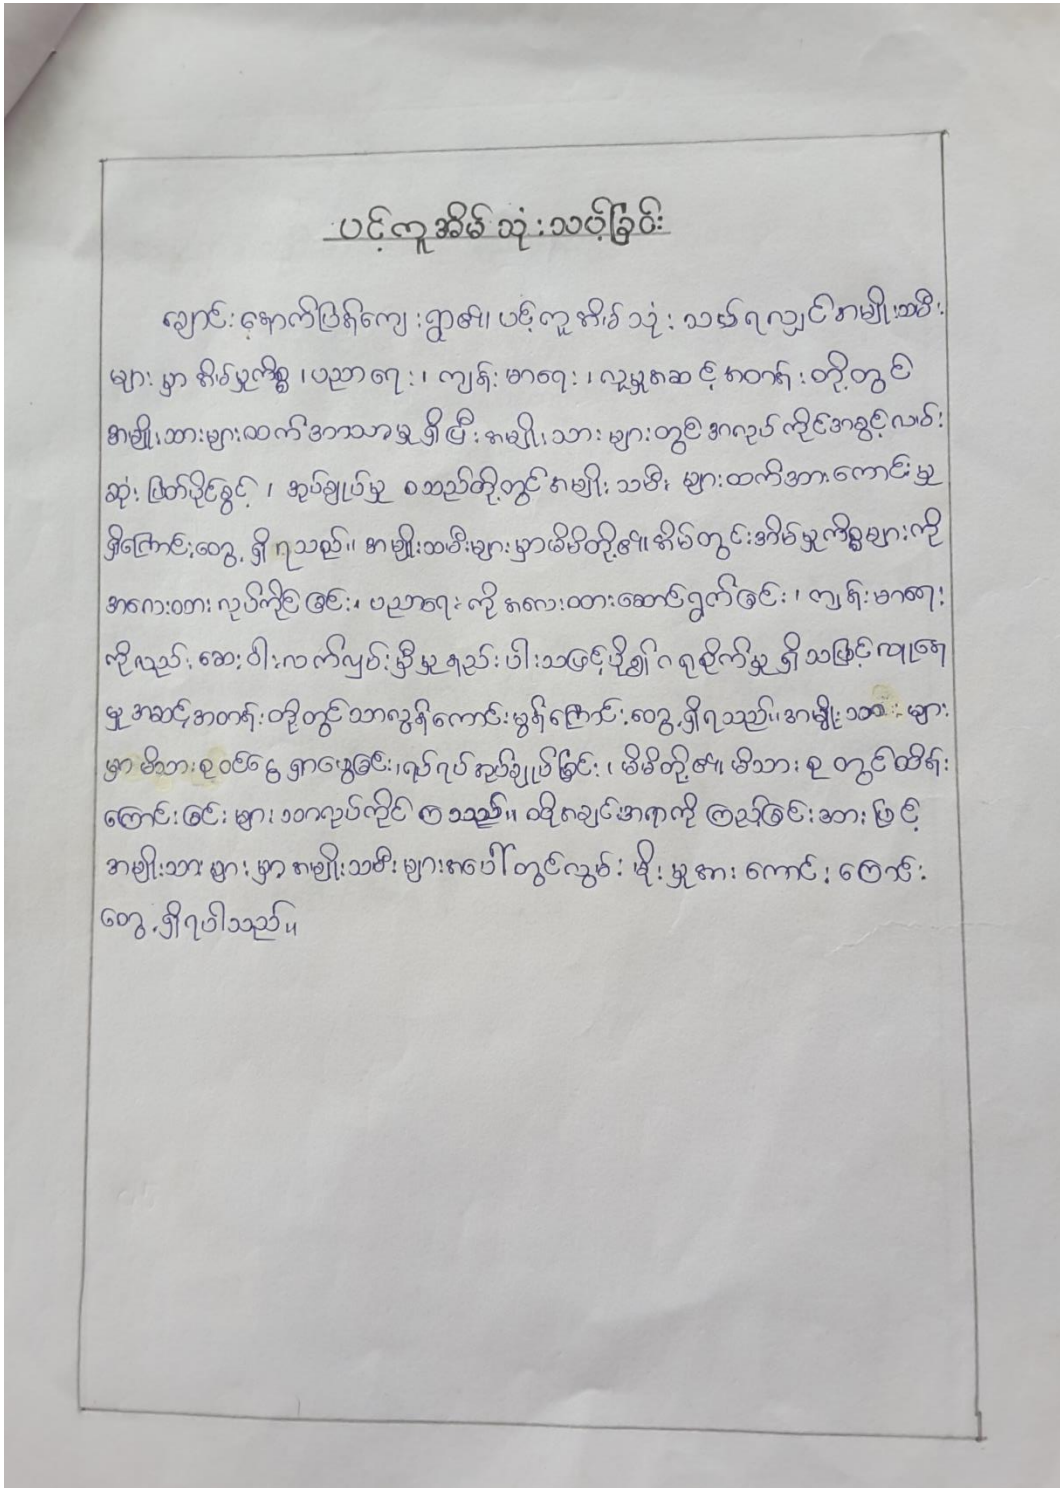 ပင့်ကူအိမ်သုံးသပ်ခြင်း
ချောင်းနောက်ပြန်ကျေးရွာ၏ ပင့်ကူအိမ်သုံးသပ်ရလျှင် အမျိုးသမီး
များမှာ အိမ်မှုကိစ္စ ၊ ပညာရေး ၊ ကျန်းမာရေး ၊ လူမှုအဆင့်အတန်းတို့တွင်
အမျိုးသားများထက်အားသာမှုရှိပြီး အမျိုးသားများတွင် အလုပ်ကိုင်အခွင့်လမ်း
ဆုံးဖြတ်ပိုင်ခွင့် ၊ အုပ်ချုပ်မှု စသည်တို့တွင် အမျိုးသမီးများထက်အားကောင်းမှု
ရှိကြောင်းတွေ့ရှိရသည်။ အမျိုးသမီးများမှာမိမိတို့၏ အိမ်တွင်းအိမ်မှုကိစ္စများကို
အလေးထားလုပ်ကိုင်ခြင်း၊ ပညာရေးကိုအလေးထားဆောင်ရွက်ခြင်း ၊ ကျန်းမာရေး
ကိုလည်း ဆေးဝါးလက်လှမ်းမှီမှုနည်းပါးသဖြင့်ပို၍ဂရုစိုက်မှုရှိသဖြင့်လူနေ
မှုအဆင့်အတန်းတို့တွင်သာလွန်ကောင်းမွန်ကြောင်းတွေ့ရှိရသည်။ အမျိုးသားများ
မှာ မိသားစုဝင်ငွေရှာဖွေခြင်း၊ ရပ်ရပ်အုပ်ချုပ်ခြင်း ၊ မိမိတို့၏ မိသားစုတွင်ထိန်း
ကြောင်းခြင်းများသာလုပ်ကိုင်ကြသည်။ ထိုအချင်းအရာကိုကြည့်ခြင်းအားဖြင့်
အမျိုးသားများမှာအမျိုးသမီးများအပေါ်တွင်လွှမ်းမိုးမှုအားကောင်းကြောင်း
တွေ့ရှိရပါသည်။